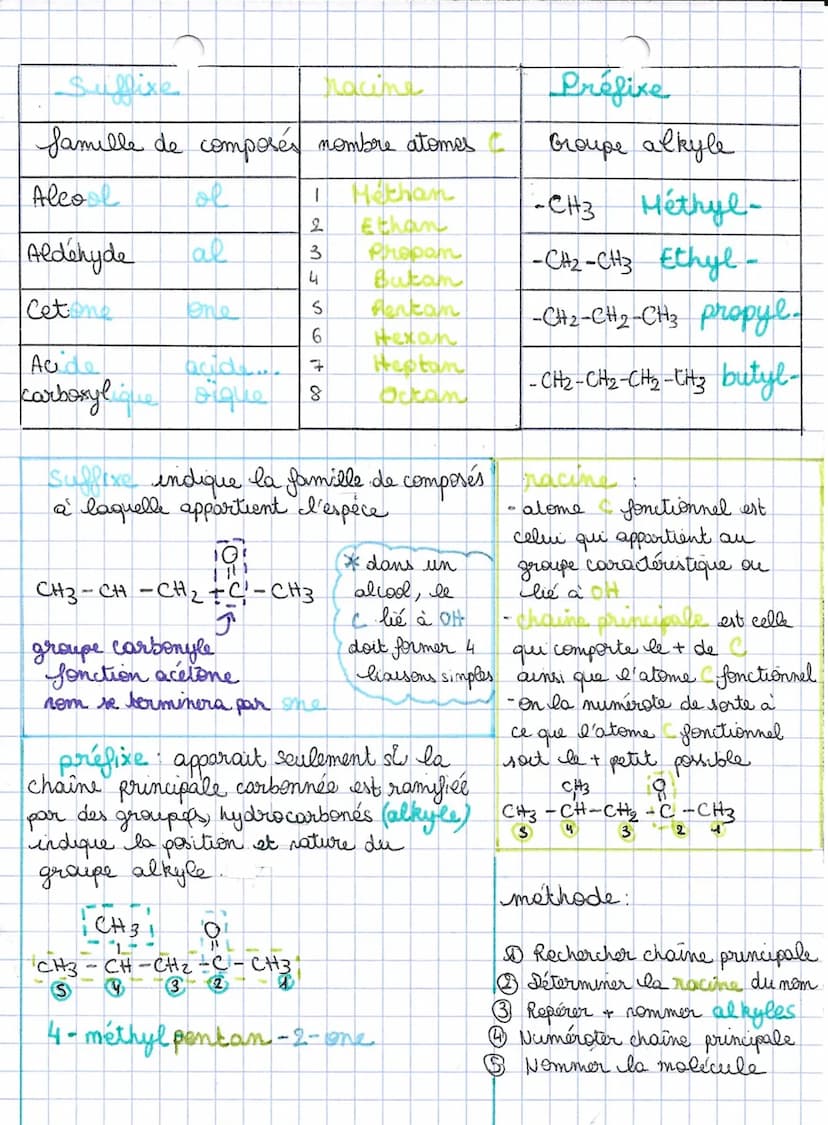 Suffixe
racine
Préfixe
famille de composés
nombre atomes C
Groupe alkyle
Alcool ol
Aldéhyde al
Cetone one
Acide acide...
carboxylique oïque
1 Méthan
2 Ethan
3 Propan
4 Butan
5 Pentan
6 Hexan
7 Heptan
8 Octan
-CH3 Méthyl-
-CH2-CH3 Ethyl-
-CH2-CH2-CH3 propyl-
-CH2-CH2-CH2-CH3 butyl-
Suffixe indique la famille de composés
à laquelle appartient l'espèce
O
CH3-CH-CH2-C-CH3
groupe carbonyle
fonction acétone
nom se terminera par one
* dans un
alcool, le
C lié à OH
doit former 4
liaisons simples
racine :
- atome C fonctionnel est
celui qui appartient au
groupe caractéristique ou
lié à OH
- chaine principale est celle
qui comporte le + de C
ainsi que l'atome C fonctionnel
- on la numérote de sorte à
ce que l'atome C fonctionnel
soit le + petit possible
CH3 O
CH3-CH-CH2-C-CH3
5 4 3 2 1
préfixe : apparait seulement si la
chaîne principale carbonnée est ramifiée
par des groupe(s) hydrocarbonés (alkyle)
indique la position et nature du
groupe alkyle.
CH3 O
CH3-CH-CH2-C-CH3
5 4 3 2 1
4-méthylpentan-2-one
méthode :
1 Rechercher chaîne principale
2 Déterminer la racine du nom
3 Repérer + nommer alkyles
4 Numéroter chaîne principale
5 Nommer la molécule